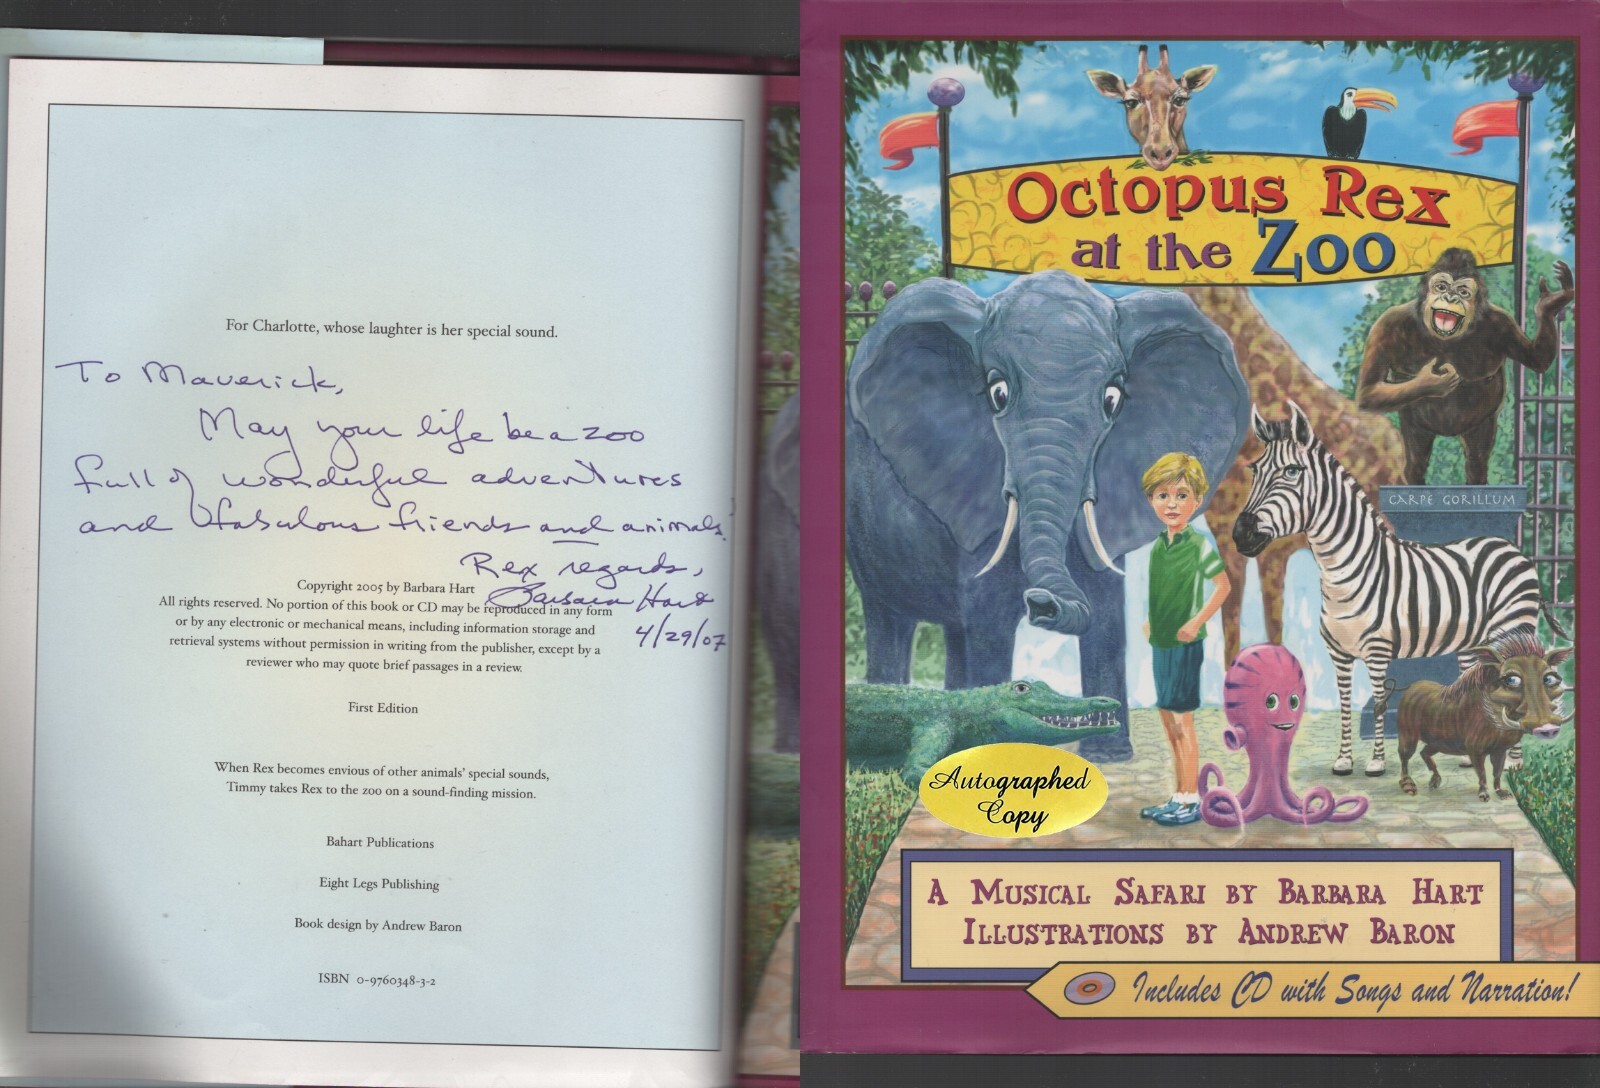 For Charlotte, whose laughter is her special sound.
To Maverick,
May your life be a zoo
full of wonderful adventures
and fabulous friends and animals.
Rex regards,
Barbara Hart
4/29/07
Copyright 2005 by Barbara Hart
All rights reserved. No portion of this book or CD may be reproduced in any form
or by any electronic or mechanical means, including information storage and
retrieval systems without permission in writing from the publisher, except by a
reviewer who may quote brief passages in a review.
First Edition
When Rex becomes envious of other animals' special sounds,
Timmy takes Rex to the zoo on a sound-finding mission.
Bahart Publications
Eight Legs Publishing
Book design by Andrew Baron
ISBN 0-9760348-3-2
Octopus Rex
at the Zoo
CARPE GORILLUM
Autographed
Copy
A Musical Safari by Barbara Hart
Illustrations by Andrew Baron
Includes CD with Songs and Narration!